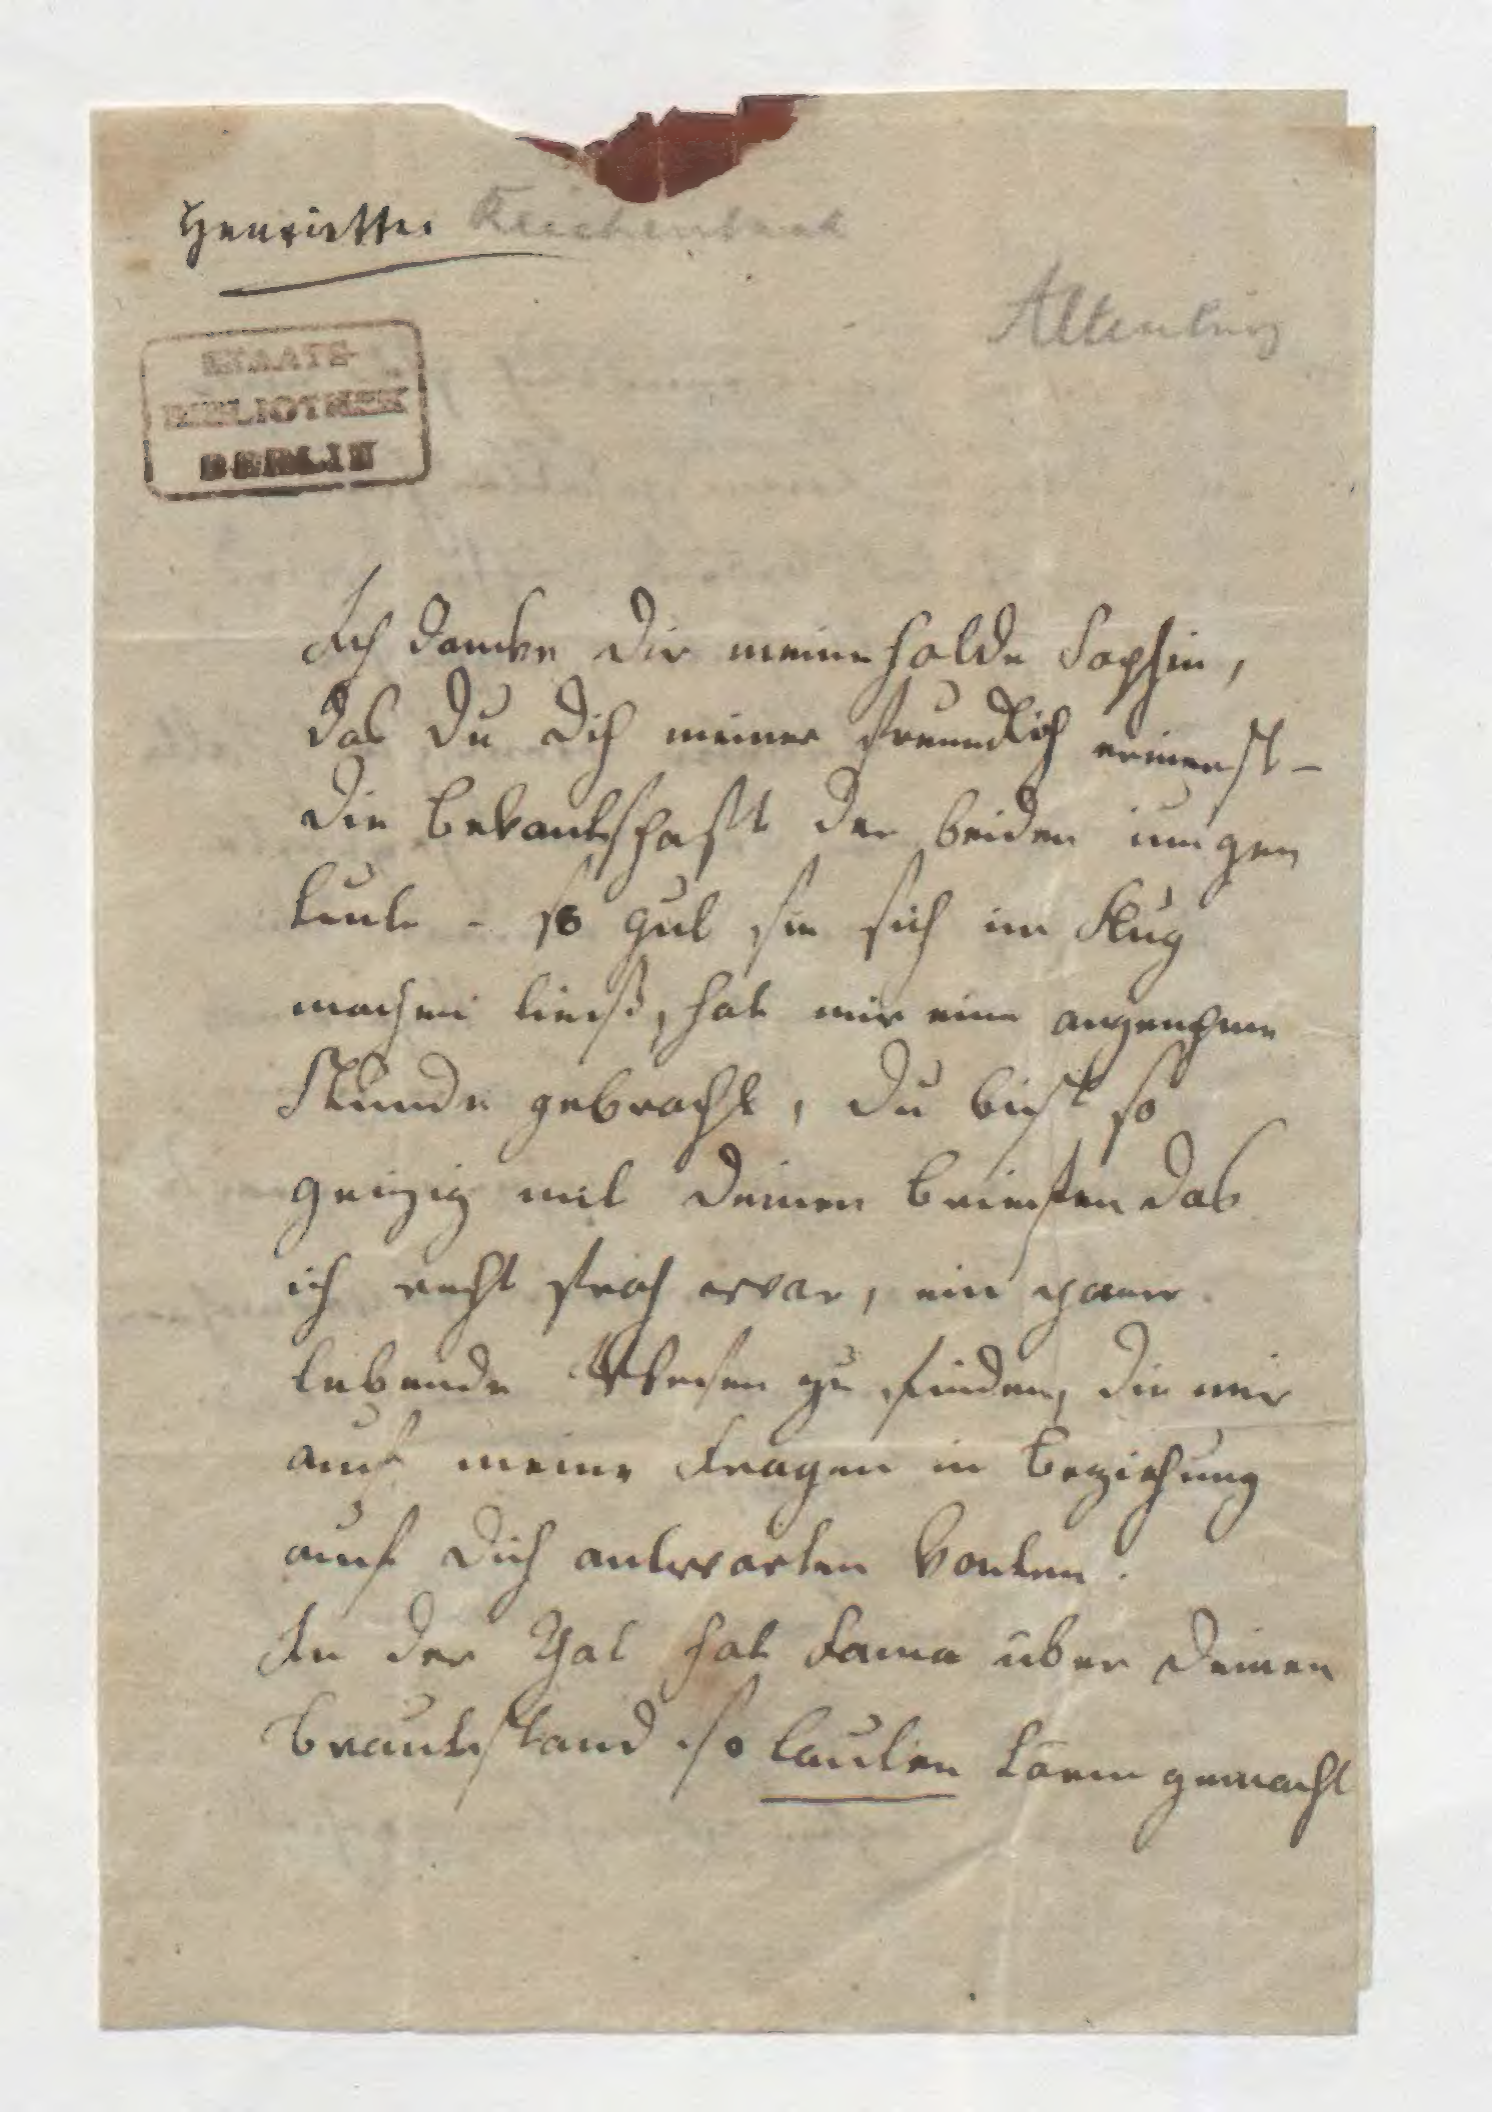 Henriette Reichenbach
Altenburg
STAATS-
BIBLIOTHEK
BERLIN
Ich dancke Dir meine holde Sophie,
das Du Dich meiner freundlich erinerst –
die Bekantschaft der beiden iungen
Leute - so gut sie sich im Flug
machen lies, hat mir eine angenehme
Stunde gebracht, Du bist so
geizig mit Deinen Briefen das
ich recht froh war, ein paar
lebende Wesen zu finden, die mir
auf meine Fragen in Beziehung
auf Dich antworten konten.
In der That hat Fama über Deinen
Brautstand so lauten Lärm gemacht